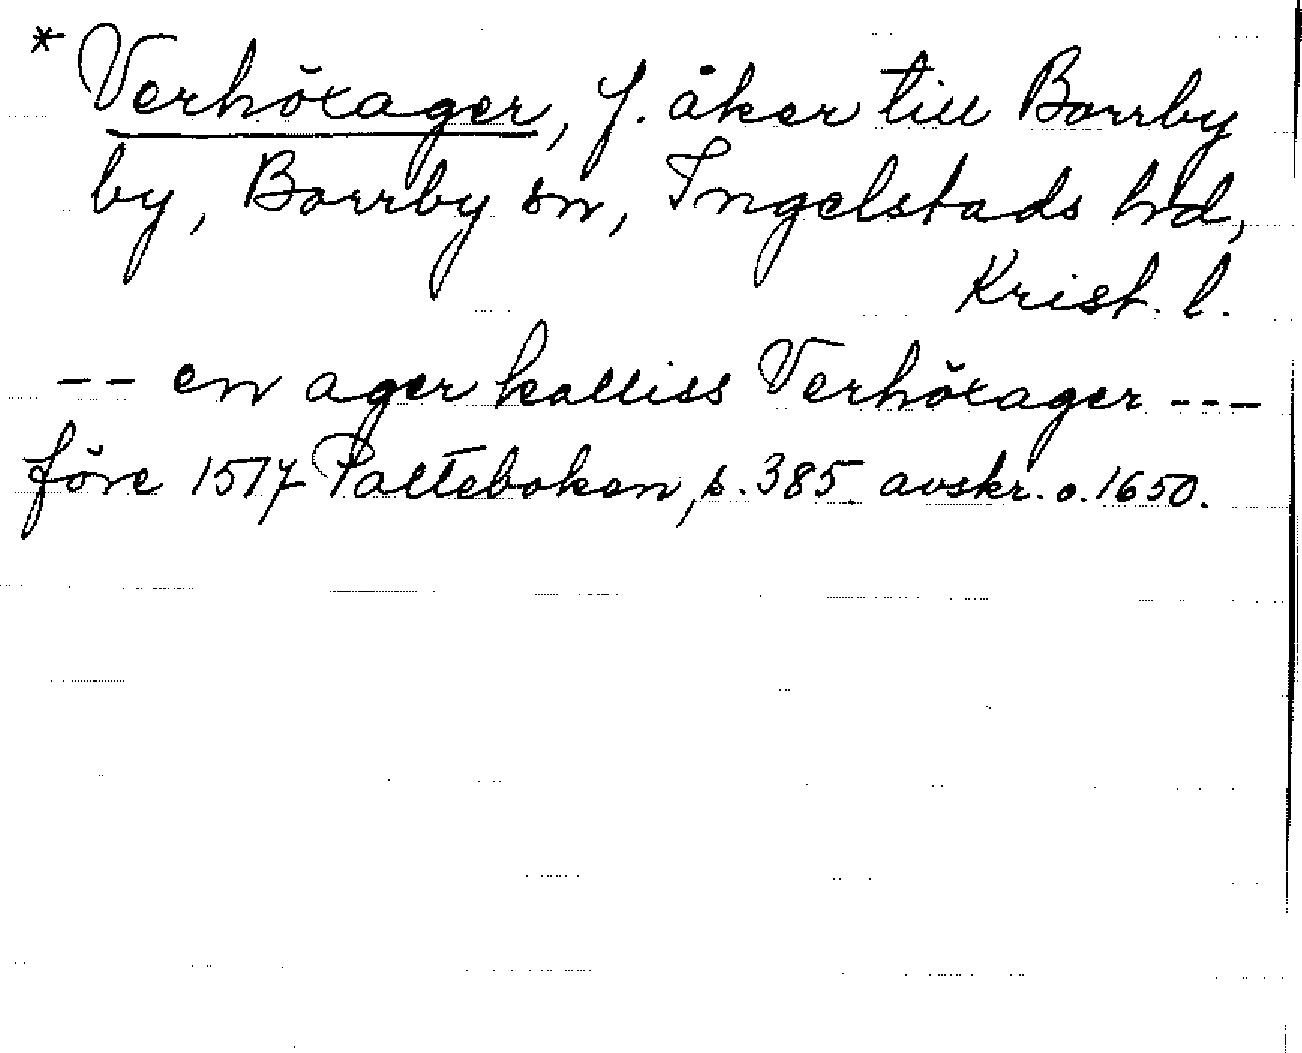 * Verhöxager, f. åker till Borrby
by, Borrby sn, Ingelstads hd,
Krist. l.
-- en ager kalliss Verhöxager ---
före 1517 Palteboken, p. 385 avskr. o. 1650.